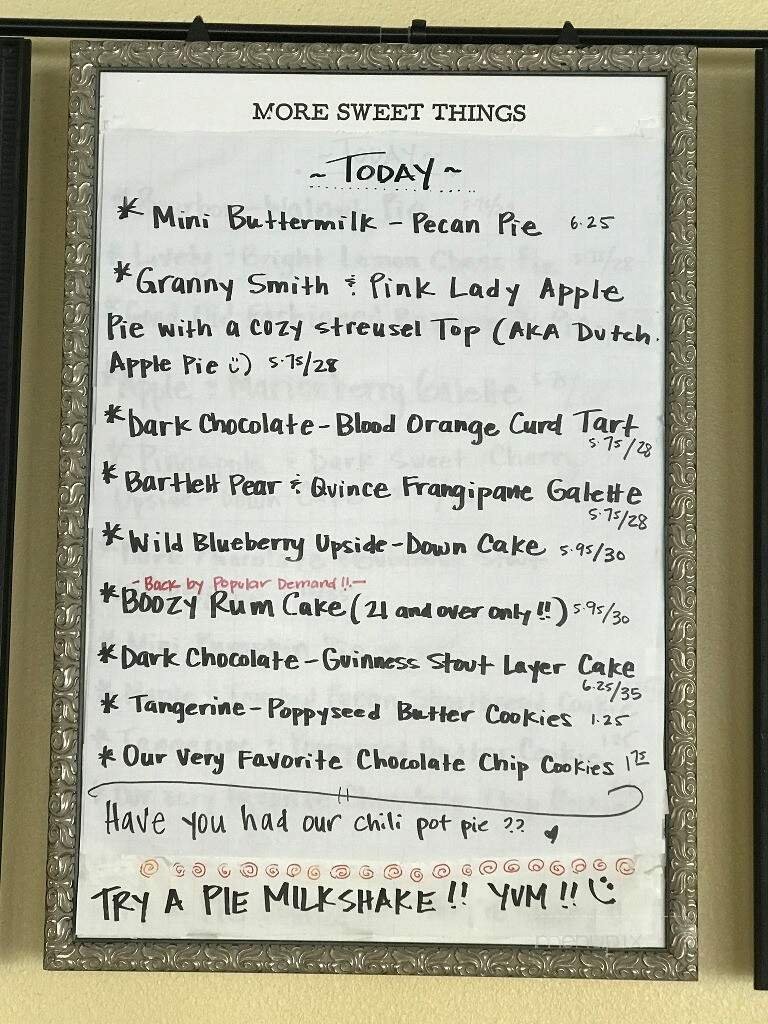 MORE SWEET THINGS
~ TODAY ~
* Mini Buttermilk - Pecan Pie 6.25
* Granny Smith & Pink Lady Apple
Pie with a cozy streusel Top (AKA Dutch
Apple Pie ü) 5.75/28
* Dark Chocolate - Blood Orange Curd Tart
5.75/28
* Bartlett Pear & Quince Frangipane Galette
5.75/28
* Wild Blueberry Upside-Down Cake 5.95/30
- Back by Popular Demand!! -
* BOOZY Rum Cake (21 and over only!!) 5.95/30
* Dark Chocolate - Guinness Stout Layer Cake
6.25/35
* Tangerine - Poppyseed Butter Cookies 1.25
* Our Very Favorite Chocolate Chip Cookies 1.75
Have you had our chili pot pie ?? ♥
TRY A PIE MILKSHAKE!! YUM!! ü
menupix